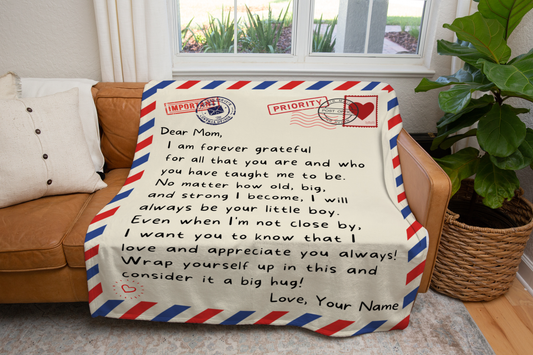 IMPORTANT
PRIORITY
Dear Mom,
I am forever grateful
for all that you are and who
you have taught me to be.
No matter how old, big,
and strong I become, I will
always be your little boy.
Even when I'm not close by,
I want you to know that I
love and appreciate you always!
Wrap yourself up in this and
consider it a big hug!
Love, Your Name